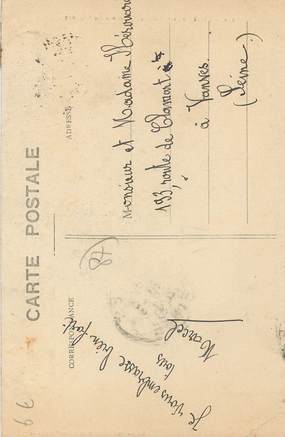 CARTE POSTALE
CORRESPONDANCE
ADRESSE
Je vous embrasse bien fort
tous
Marcel
87
Monsieur et Madame
133, route de Clamart
à Vanves
(Seine)
6€